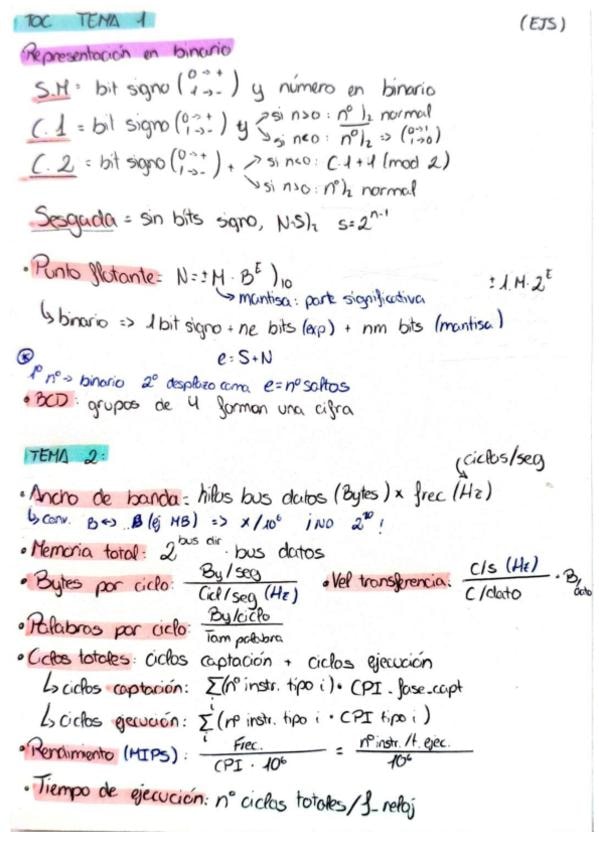 TOC TEMA 1 (EJS)
Representación en binario
S.M = bit signo (0→+ 1→-) y número en binario
C.1 = bit signo (0→+ 1→-) y si n>0: nº)₂ normal
si n<0: nº)₂ => (0→1 1→0)
C.2 = bit signo (0→+ 1→-) + si n<0: C.1+1 (mod 2)
si n>0: nº)₂ normal
Sesgada = sin bits signo, N+S)₂ s=2^(n-1)
• Punto flotante = N = ±M · B^E )₁₀ ±1.M·2^E
↳ mantisa: parte significativa
↳ binario => 1 bit signo + ne bits (exp) + nm bits (mantisa)
e = S+N
1º nº → binario 2º desplazo coma e = nº saltos
• BCD: grupos de 4 forman una cifra
TEMA 2:
ciclos/seg
• Ancho de banda = hilos bus datos (Bytes) x frec (Hz)
↳ conv. B ↔ B (ej MB) => x/10⁶ ¡NO 2^20!
• Memoria total: 2^bus dir · bus datos
• Bytes por ciclo: By/seg / Cicl/seg (Hz) • Vel transferencia: C/s (Hz) / C/dato · B/dato
• Palabras por ciclo: By/ciclo / Tam palabra
• Ciclos totales: ciclos captación + ciclos ejecución
↳ ciclos captación: Σi (nº instr. tipo i) · CPI_fase_capt
↳ ciclos ejecución: Σi (nº instr. tipo i · CPI tipo i)
• Rendimiento (MIPS): Frec. / CPI · 10⁶ = nº instr./t. ejec. / 10⁶
• Tiempo de ejecución: nº ciclos totales/f_reloj